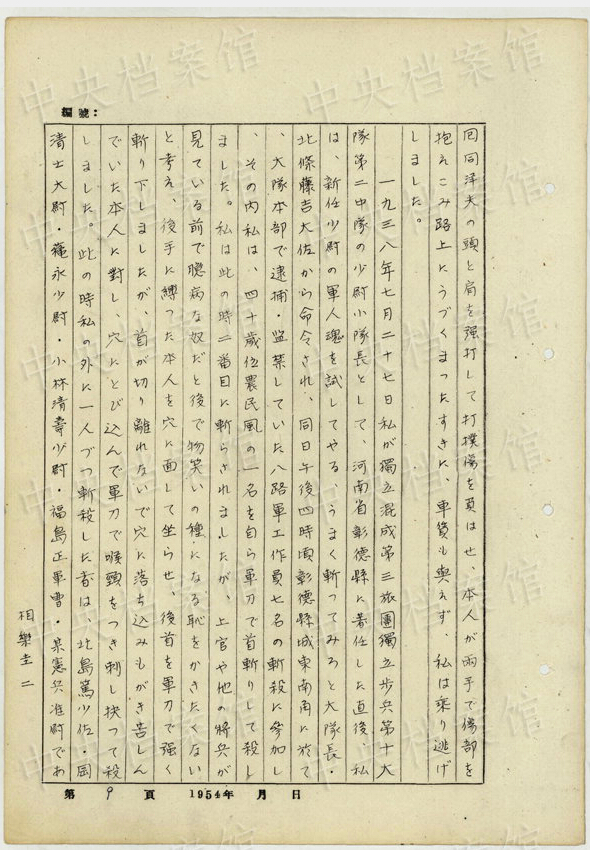 編號：
回同洋夫の頭と肩を强打して打撲傷を負はせ、本人が兩手で傷部を
抱えこみ路上にうづくまつたすきに、車賃も與えず、私は乘り逃げ
しました。
一九三八年七月二十七日私が獨立混成第三旅團獨立步兵第十大
隊第二中隊の少尉小隊長として、河南省彰德縣に着任した直後、私
は、新任少尉の軍人魂を試してやる、うまく斬つてみろと大隊長・
北條藤吉大佐から命令され、同日午後四時頃彰德縣城東南角に於て
、大隊本部で逮捕・監禁していた八路軍工作員七名の斬殺に參加し
、その内私は、四十歲位農民風の一名を自ら軍刀で首斬りして殺し
ました。私は此の時二番目に斬らされましたが、上官や他の將兵が
見ている前で臆病な奴だと後で物笑いの種になる恥をかきたくない
と考え、後手に縛つた本人を穴に面して坐らせ、後首を軍刀で强く
斬り下しましたが、首が切り離れないで穴に落ち込みもがき苦しん
でいた本人に對し、穴にとび込んで軍刀で喉頸をつき刺し抉つて殺
しました。此の時私の外に一人づつ斬殺した者は、北島篤少佐・岡
清士大尉・篠永少尉・小林清壽少尉・福島正軍曹・某憲兵准尉であ
相樂圭二
第 9 頁 1954年 月 日
中央档案馆